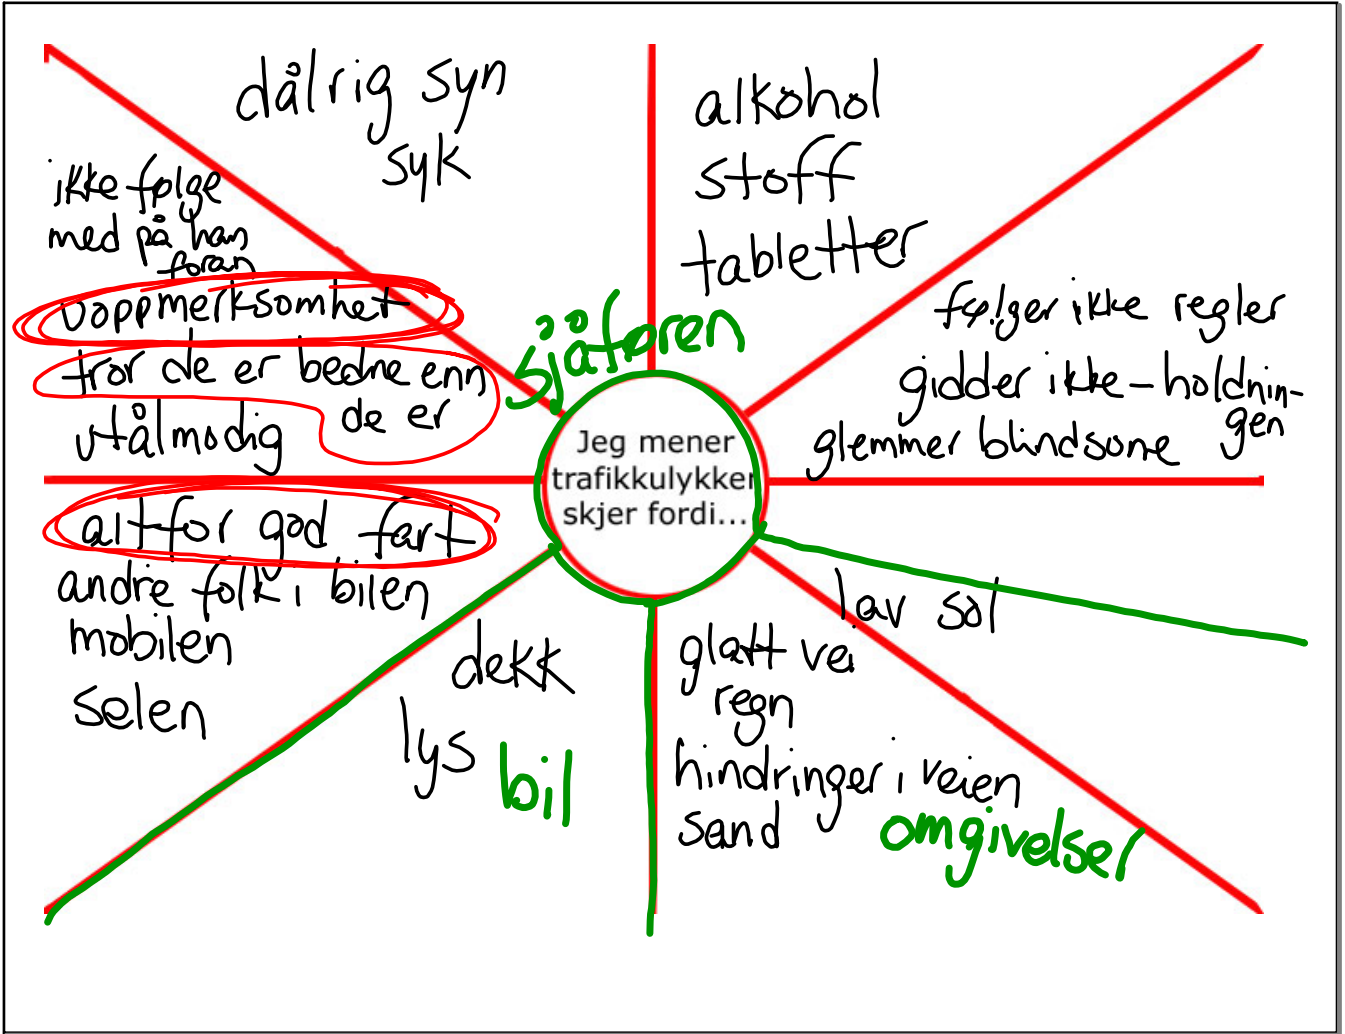 dålrig syn
syk
alkohol
stoff
tabletter
ikke følge
med på han
foran
uoppmerksomhet
tror de er bedre enn
de er
utålmodig
sjåføren
følger ikke regler
gidder ikke - holdnin-
gen
glemmer blindsone
Jeg mener
trafikkulykker
skjer fordi...
altfor god fart
andre folk i bilen
mobilen
selen
dekk
lys
bil
lav sol
glatt vei
regn
hindringer i veien
sand
omgivelser